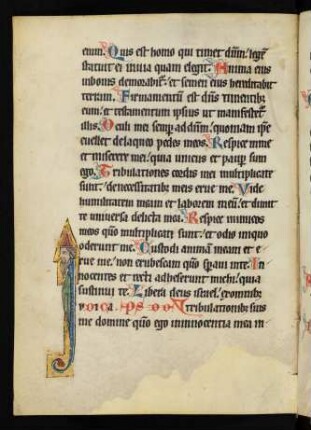 eum. Quis est homo qui timet dūm. legē
statuit ei in uia quam elegit. Anima eius
in bonis demorabit̄. et semen eius hereditabit
terram. Firmamentū est dūs timentib;
eum. et testamentum ipsius ut manifestet̄
illis. Oculi mei semp ad dūm. quoniam ip̄e
euellet de laqueo pedes meos. Respice in me
et miserere mei. quia unicus et paup sum
ego. Tribulationes cordis mei multiplicate
sunt. de necessitatib; meis erue me. Uide
humilitatem meam et laborem meū. et dimit
te uniuersa delicta mea. Respice inimicos
meos qm̄ multiplicati sunt. et odio iniquo
oderunt me. Custodi animā meam et e
rue me. non erubescam qm̄ spaui in te. In
nocentes et recti adheserunt michi. quia
sustinui te. Libera deus israel. ex omnib;
tribulationib; suis
me domine qm̄ ego in innocentia mea in